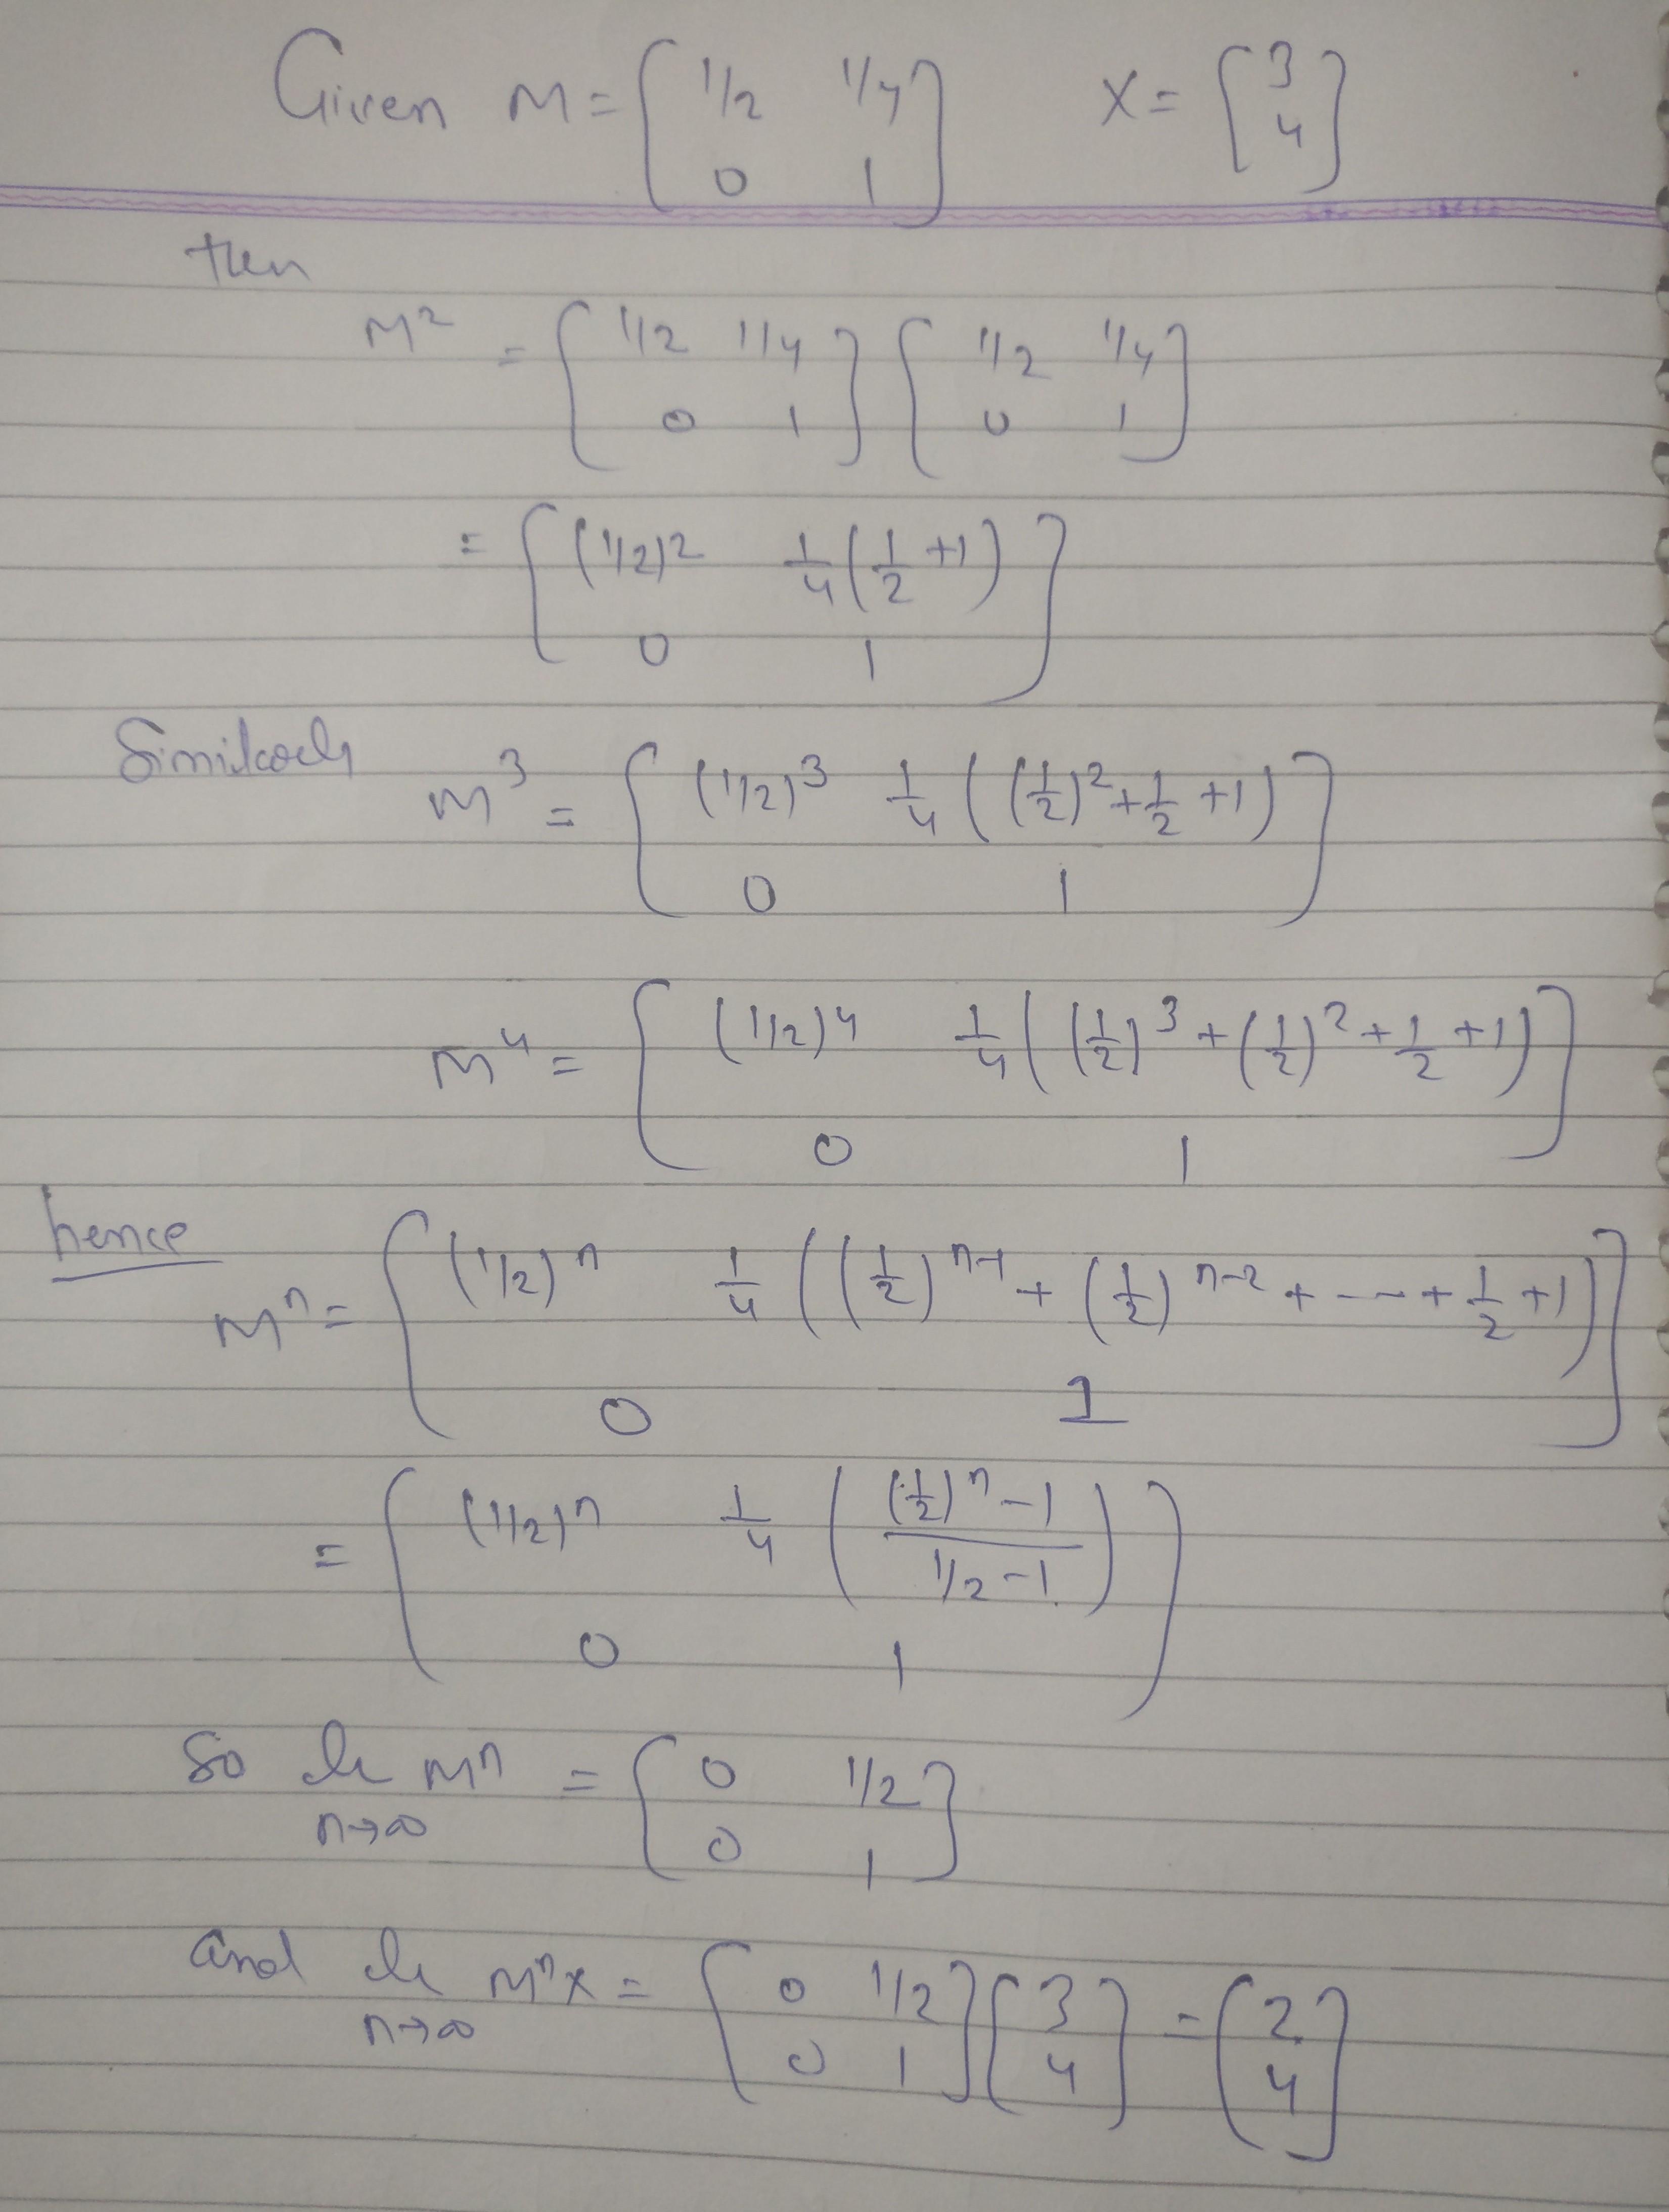 Given M = [ 1/2 1/4 X = [ 3
0 1 ] 4 ]
then
M² = [ 1/2 1/4 ] [ 1/2 1/4 ]
0 1 0 1
= [ (1/2)² 1/4 (1/2 + 1) ]
0 1
M³ = [ (1/2)³ 1/4 ((1/2)² + 1/2 + 1) ]
0 1
M⁴ = [ (1/2)⁴ 1/4 ((1/2)³ + (1/2)² + 1/2 + 1) ]
0 1
hence
Mⁿ = [ (1/2)ⁿ 1/4 ((1/2)ⁿ⁻¹ + (1/2)ⁿ⁻² + --- + 1/2 + 1) ]
0 1
= [ (1/2)ⁿ 1/4 ( ((1/2)ⁿ - 1) / (1/2 - 1) ) ]
0 1
So Mⁿ = [ 0 1/2 ]
n→∞ 0 1
and MⁿX = [ 0 1/2 ] [ 3 ] = [ 2 ]
n→∞ 0 1 4 4